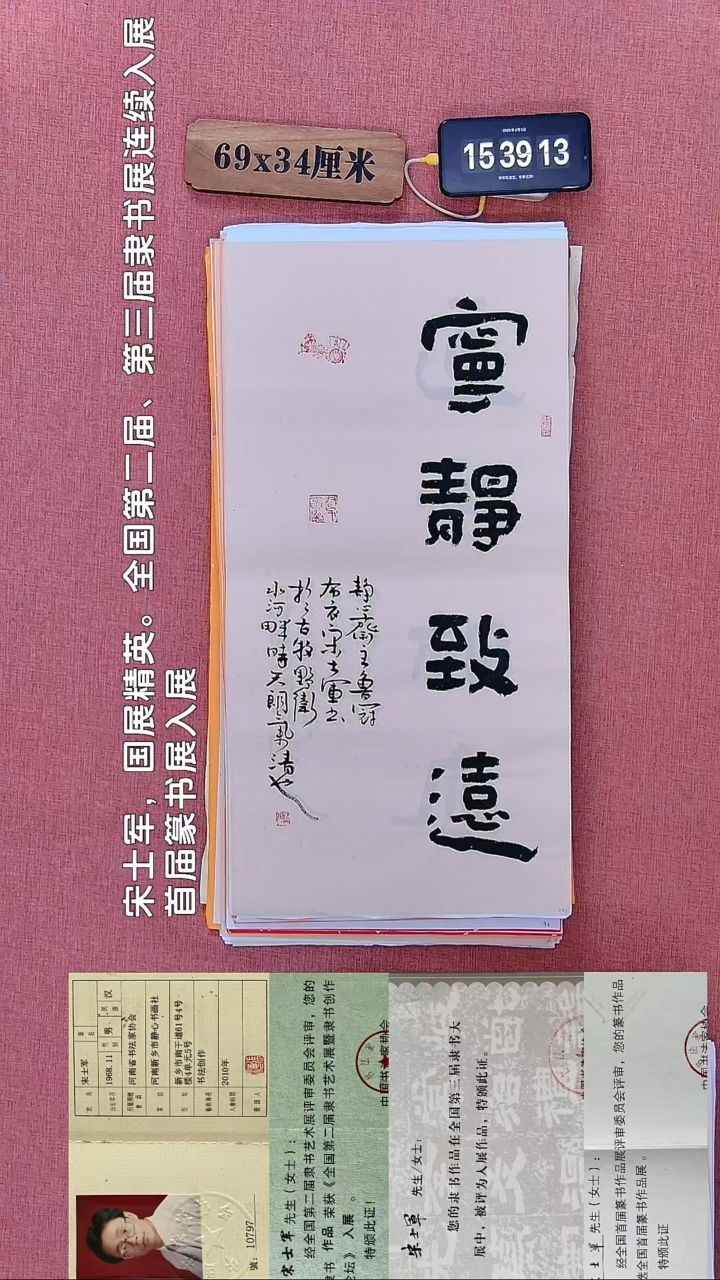 宋士军，国展精英。全国第二届、第三届隶书展连续入展
首届篆书展入展
69x34厘米
15 39 13
寧靜致遠
静心斋主鲁豫
布衣宋士軍书
於古牧野卫
小河畔時天朗氣清也
姓名 宋士军
出生年月 1968.11 性别 男 民族 汉
河南省书法家协会
单位 河南新乡市静心书画社
住址 新乡市南干道61号4号
楼4单元5号
书法创作
入会时间 2010年
號：10797
宋士军 先生（女士）：
经全国第二届隶书艺术展评审委员会评审，您的
隶书 作品 荣获《全国第二届隶书艺术展暨隶书创作
论坛》 入展 。
特颁此证！
中国书法家协会
宋士軍 先生/女士：
您的隶书作品在全国第三届隶书大
展中，被评为入展作品，特颁此证。
士军 先生（女士）：
经全国首届篆书作品展评审委员会评审，您的篆书作品
选全国首届篆书作品展 。
特颁此证
中国书法家协会